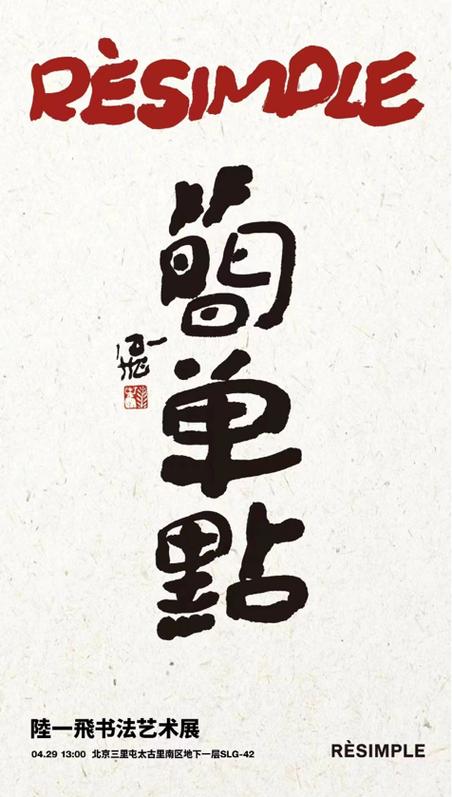 RÈSIMPLE
簡单點
一飛
陸一飛书法艺术展
04.29 13:00 北京三里屯太古里南区地下一层SLG-42
RÈSIMPLE